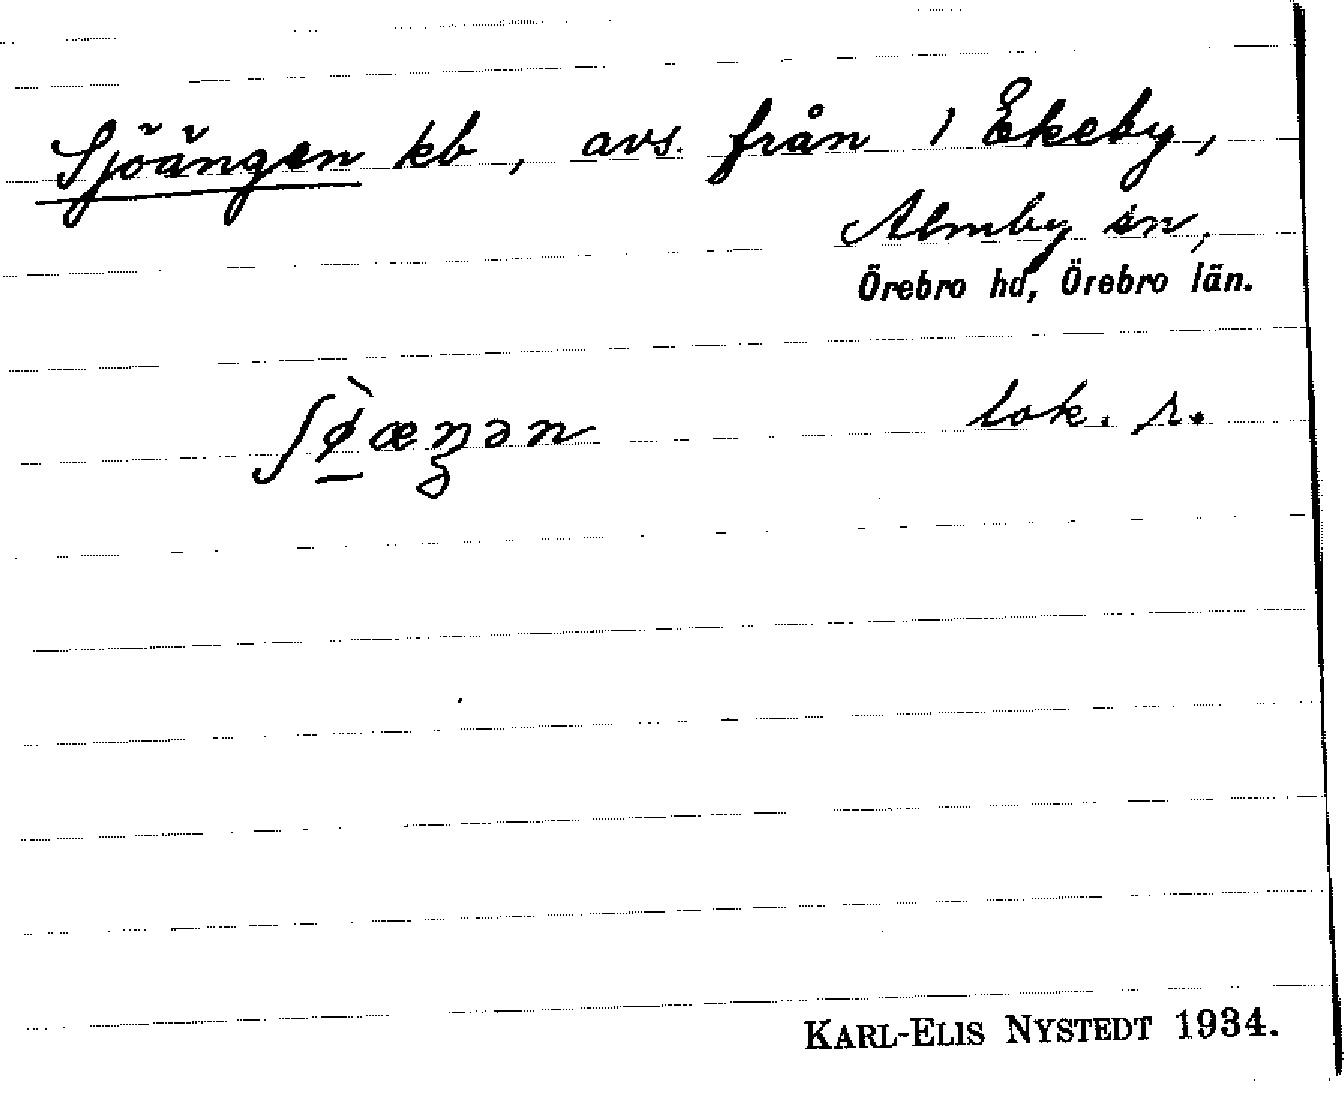 Sjöängen kb, avs. från 1 Ekeby,
Almby sn,
Örebro hd, Örebro län.
ʃø̠̀æŋən lok. r.
KARL-ELIS NYSTEDT 1934.